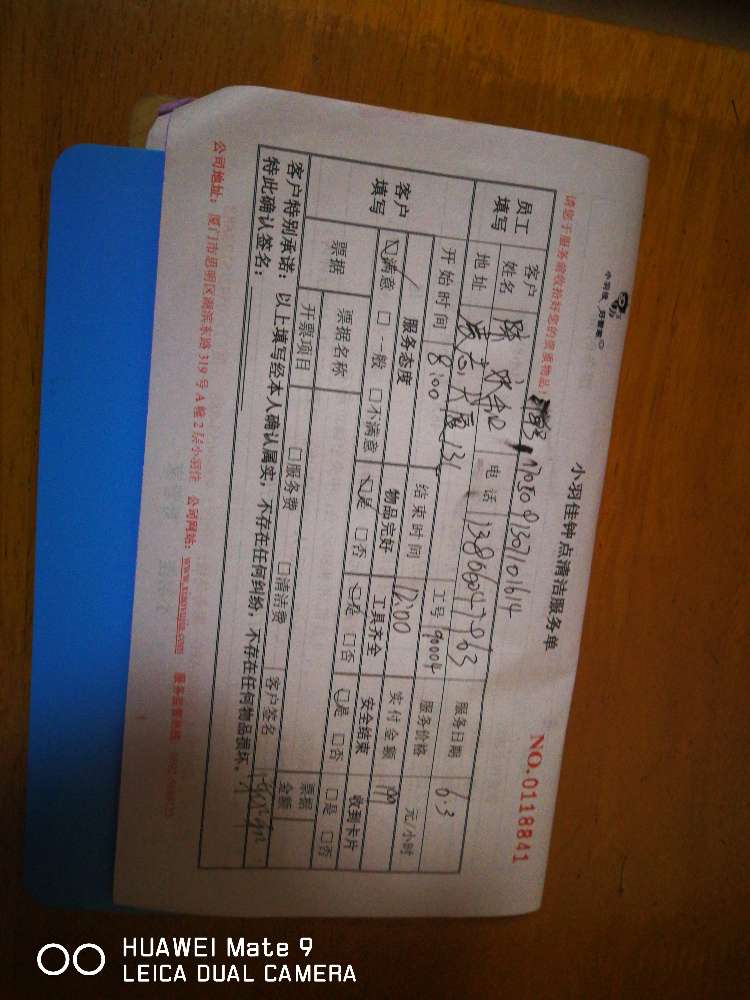 小羽佳钟点清洁服务单
NO.0118841
请您于服务前收拾好您的贵重物品!
员工填写 客户姓名 陈 电话 13806047963 服务日期 6.3
地址 工号 90004 服务价格 元/小时
客户填写 开始时间 8:00 结束时间 12:00 实付金额
服务态度 物品完好 工具齐全 安全结束 收到卡片
☑满意 □一般 □不满意 ☑是 □否 ☑是 □否 ☑是 □否 □是 □否
票据 票据名称 票据金额
开票项目 □服务费 □清洁费 客户签名
客户特别承诺:以上填写经本人确认属实,不存在任何纠纷,不存在任何物品损坏,
特此确认签名:
公司地址:厦门市思明区湖滨东路319号A幢2层小羽佳 公司网站:www.xiaoyujia.com
HUAWEI Mate 9
LEICA DUAL CAMERA